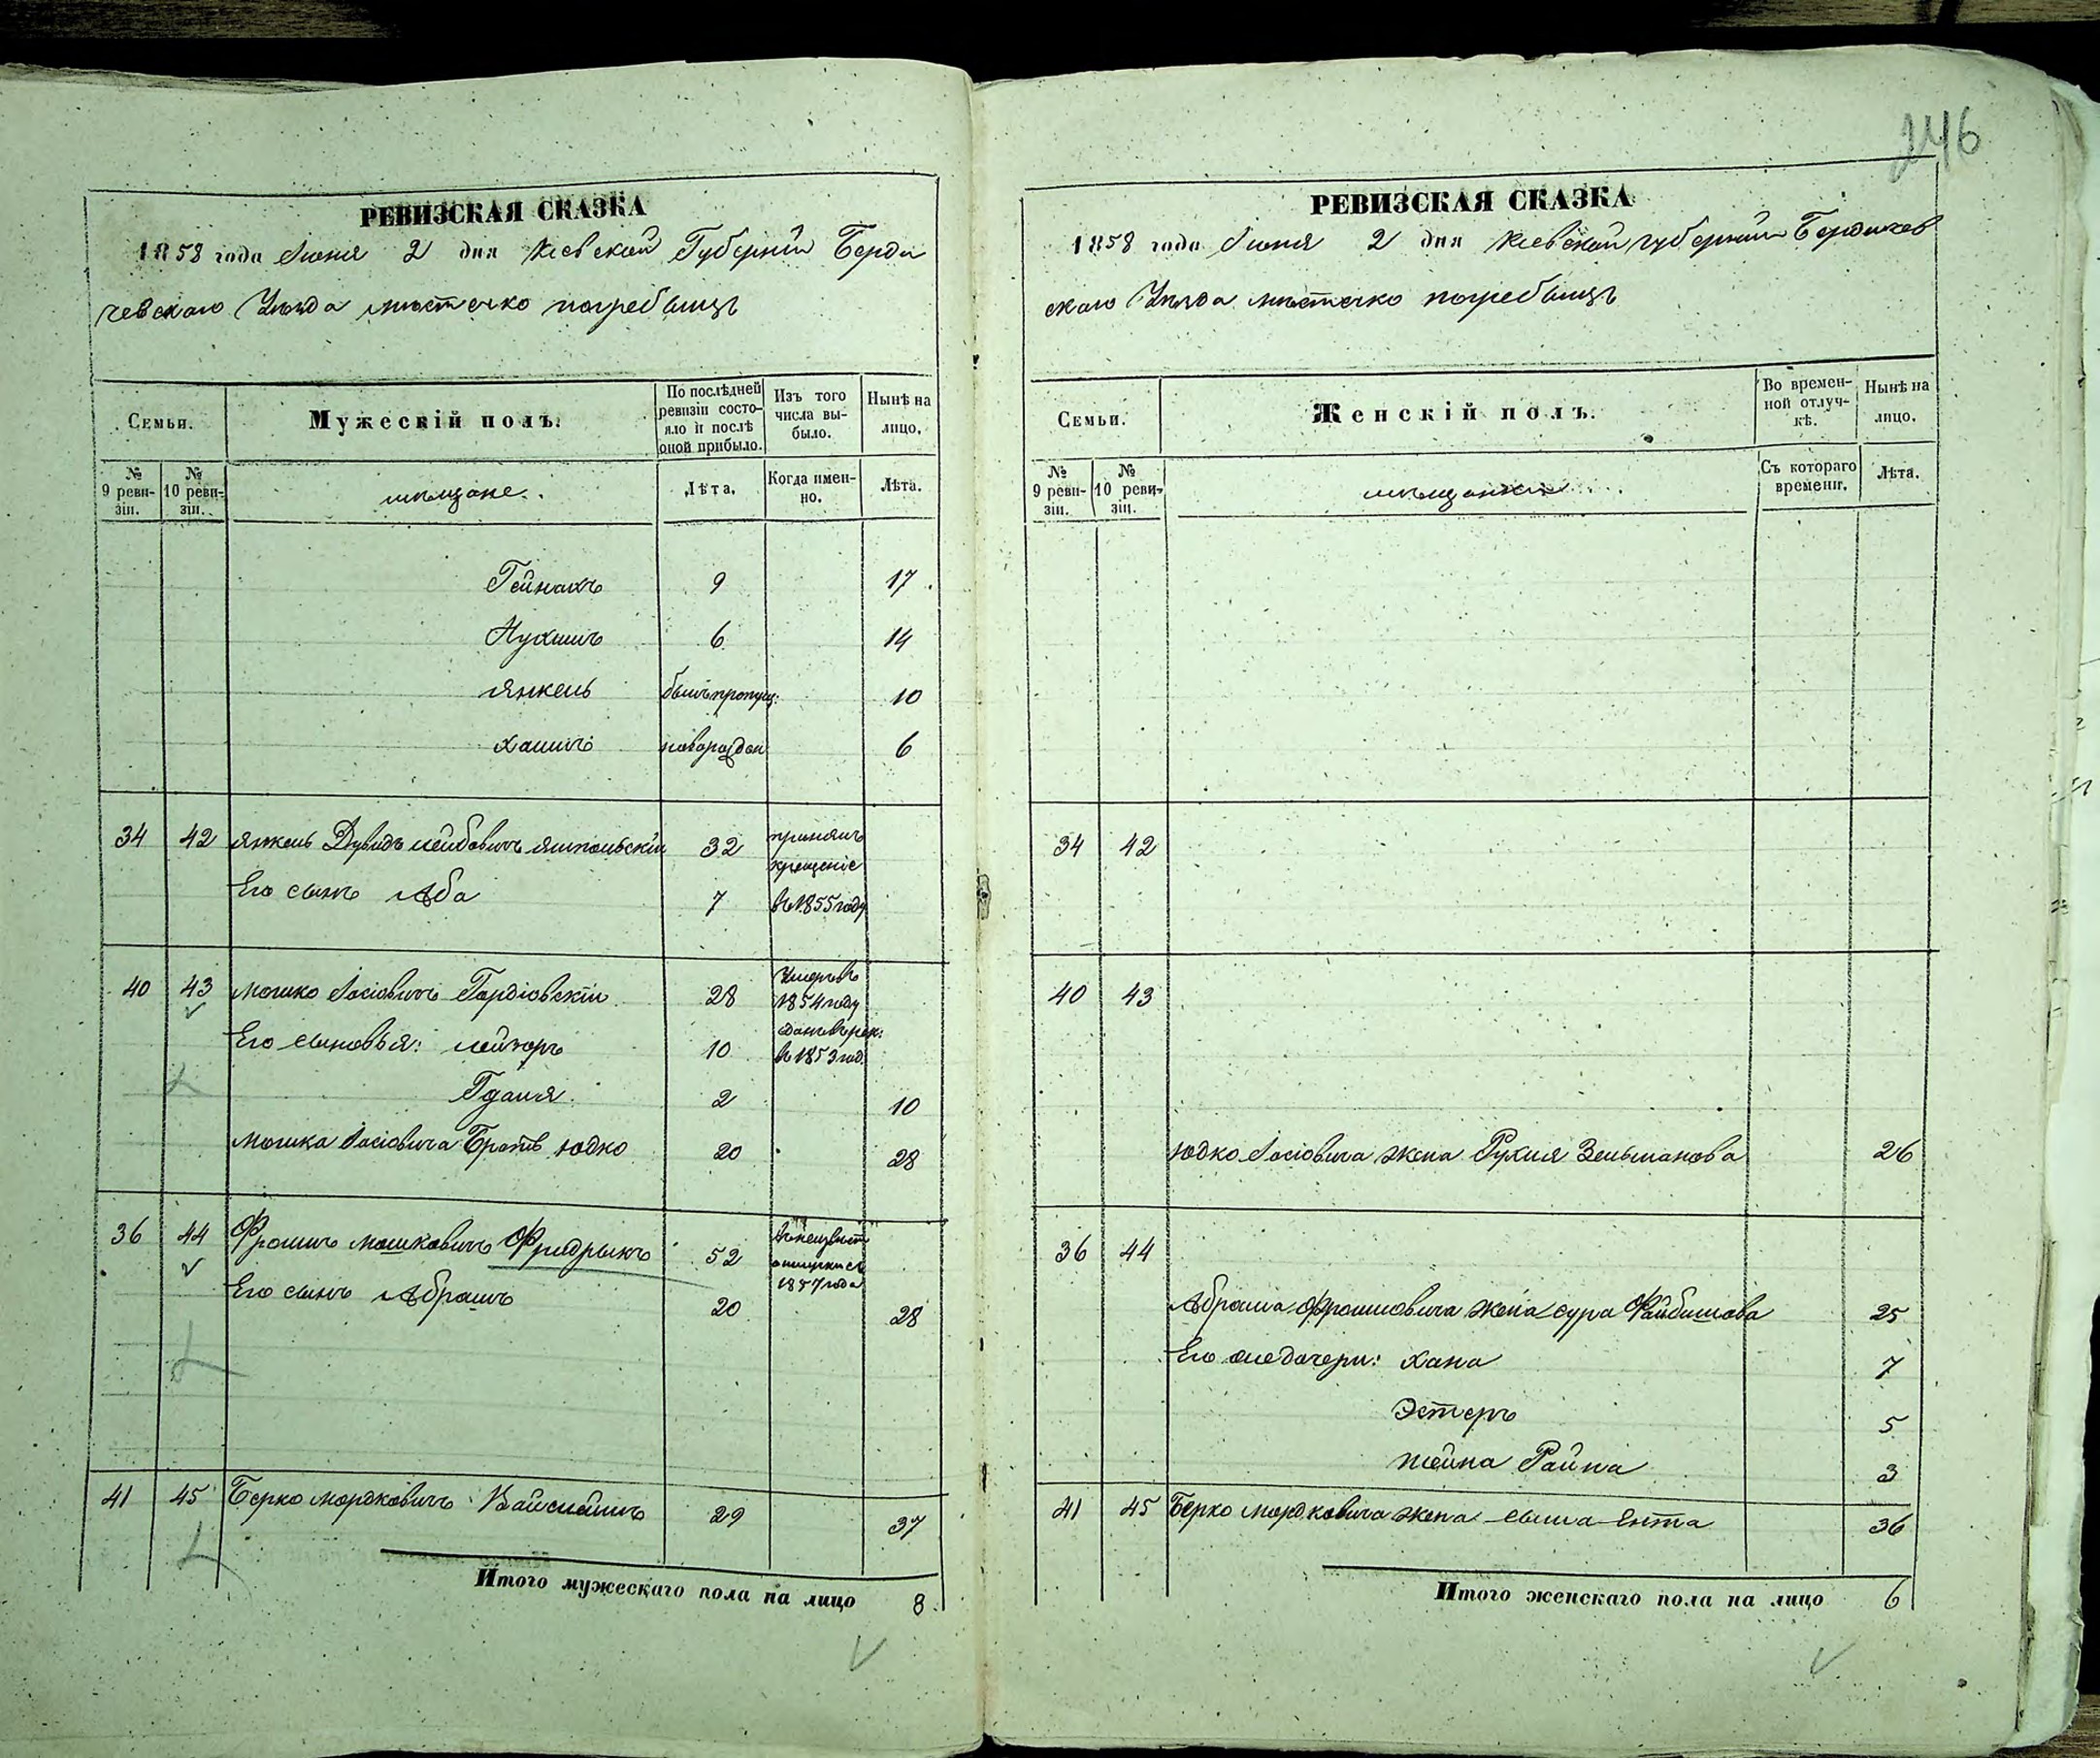 246
РЕВИЗСКАЯ СКАЗКА
1858 года Июня 2 дня Кіевской Губерніи Берди
чевскаго Уѣзда мѣстечко погребыщь
Семьи.
Мужескій полъ.
По послѣдней ревизіи состояло и послѣ оной прибыло.
Изъ того числа выбыло.
Нынѣ на лицо.
№ 9 ревизіи.
№ 10 ревизіи.
мѣщане.
Лѣта.
Когда именно.
Лѣта.
Гейнахъ 9 17
Нухимъ 6 14
Янкель былъ пропущ: 10
Хаимъ новорожден 6
34 42 Янкель Дувидъ Лейбовичъ Ямпольскій 32 принялъ
крещеніе
Его сынъ Аба 7 въ 1855 году
40 43 Мошко Іосіовичъ Гордіовскій 28 Умеръ въ
1854 году
Его сыновья: Лейзоръ 10 въ 1853 год.
Гдаля 2 10
Мошка Іосіовича Братъ Юдко 20 28
36 44 Фроимъ Мошковичъ Фридрыхъ 52 въ неизвѣст
отлучки съ
1857 года
Его сынъ Абрамъ 20 28
41 45 Берко Мордковичъ Вайсмаинъ 29 37
Итого мужескаго пола на лицо 8
РЕВИЗСКАЯ СКАЗКА
1858 года Июня 2 дня Кіевской губерніи Бердичев
скаго Уѣзда мѣстечко погребыщь
Семьи.
Женскій полъ.
Во временной отлучкѣ.
Нынѣ на лицо.
№ 9 ревизіи.
№ 10 ревизіи.
мѣщанки
Съ котораго времени.
Лѣта.
34 42
40 43
Юдко Іосіовича жена Рухля Зельманова 26
36 44
Абрама Фроимовича жена Сура Файбишова 25
Его же дочери: Хана 7
Эстеръ 5
Шейна Райца 3
41 45 Берко Мордковича жена Сыма Ента 36
Итого женскаго пола на лицо 6